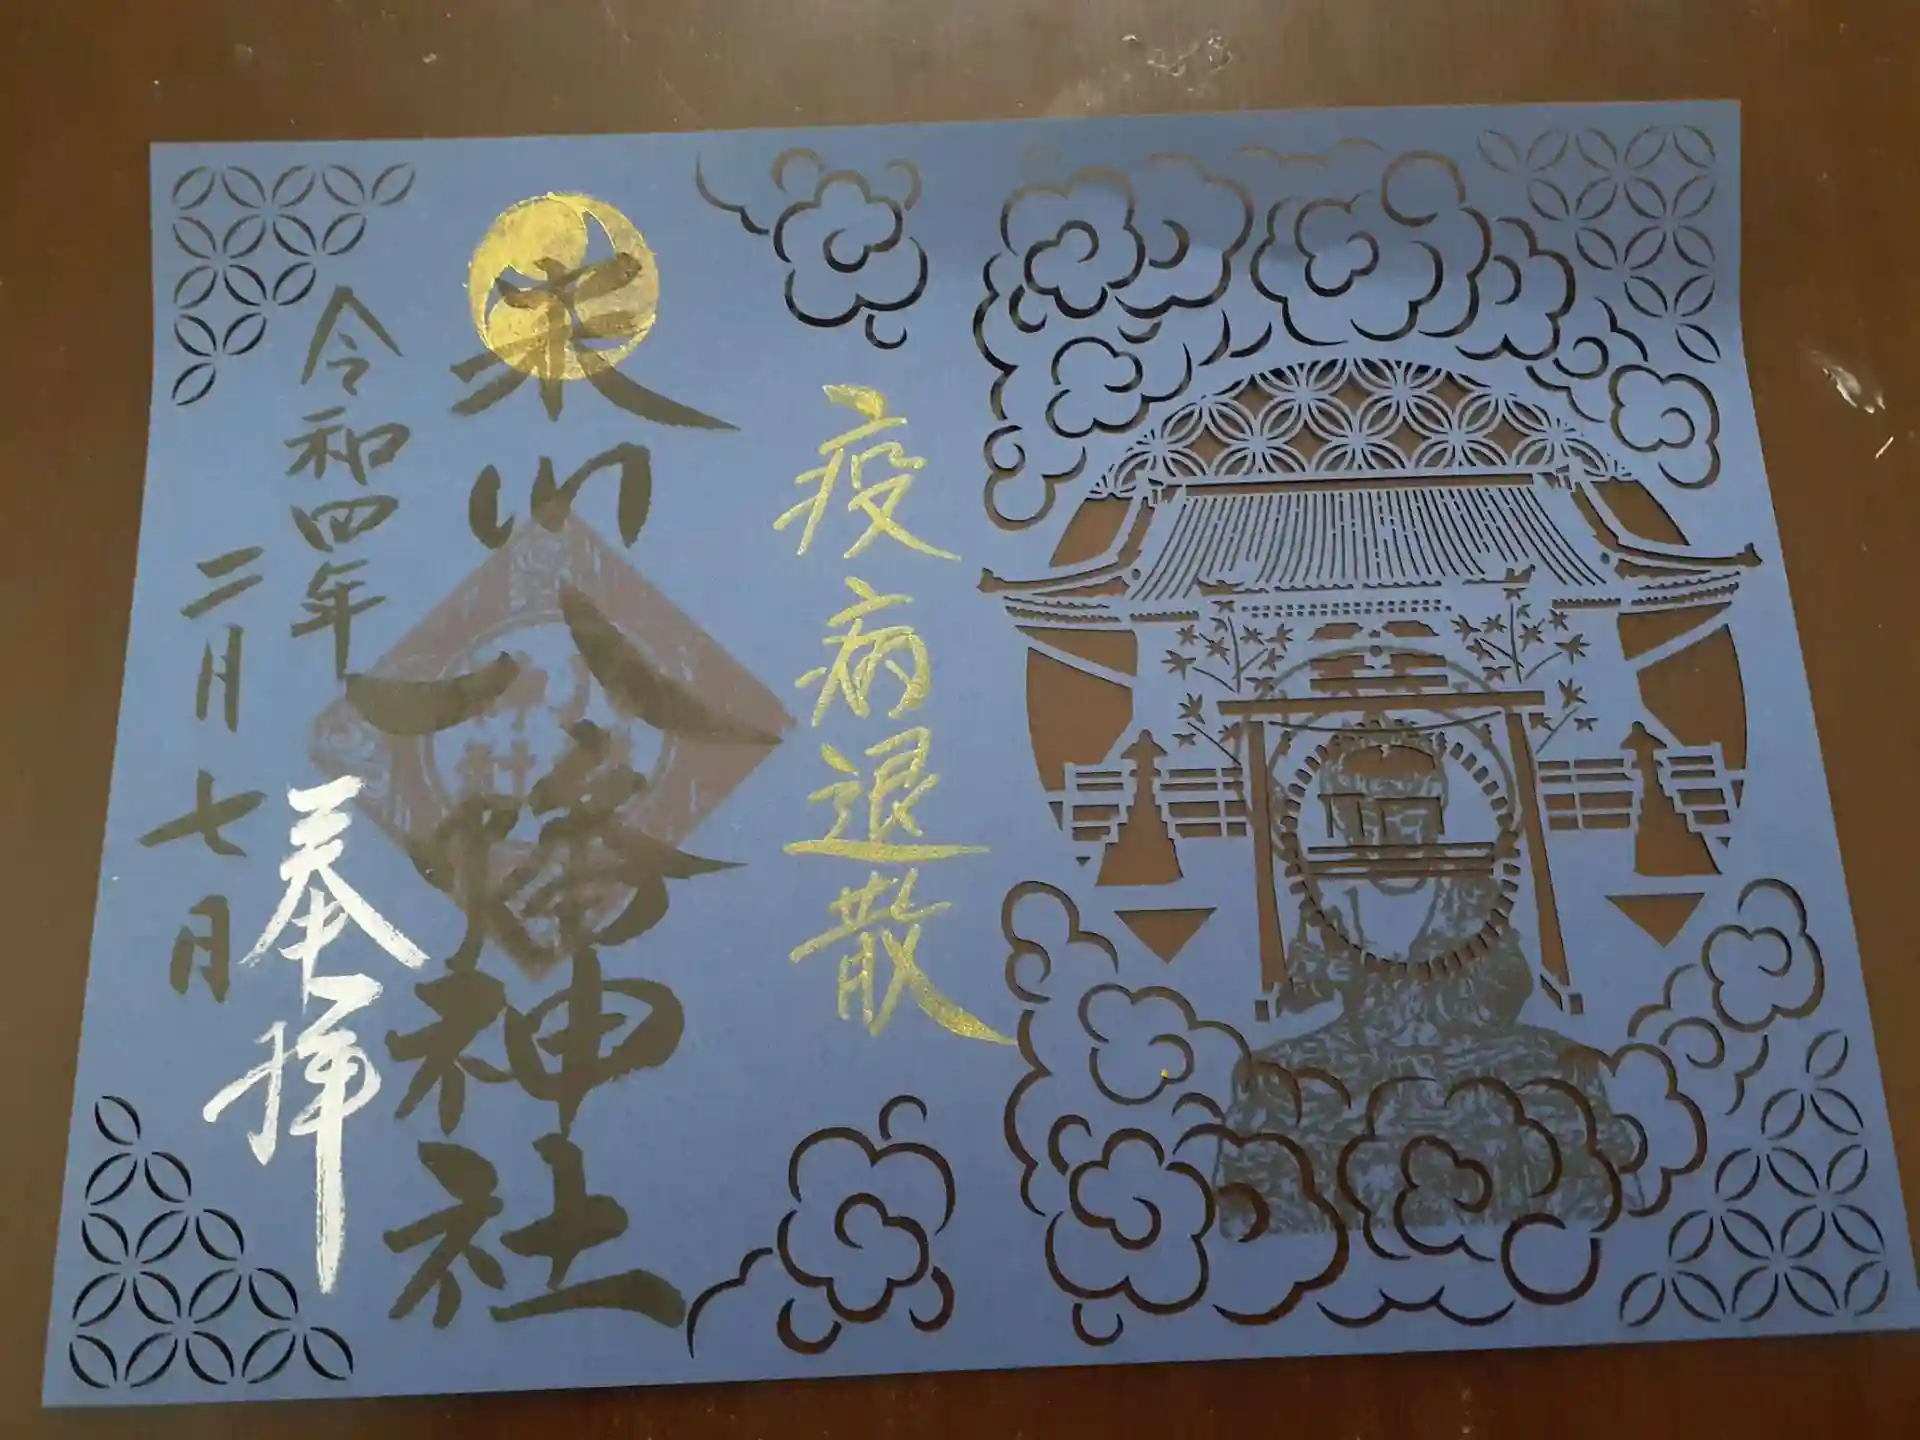 疫病退散
八幡神社
奉拝
令和四年
二月七日